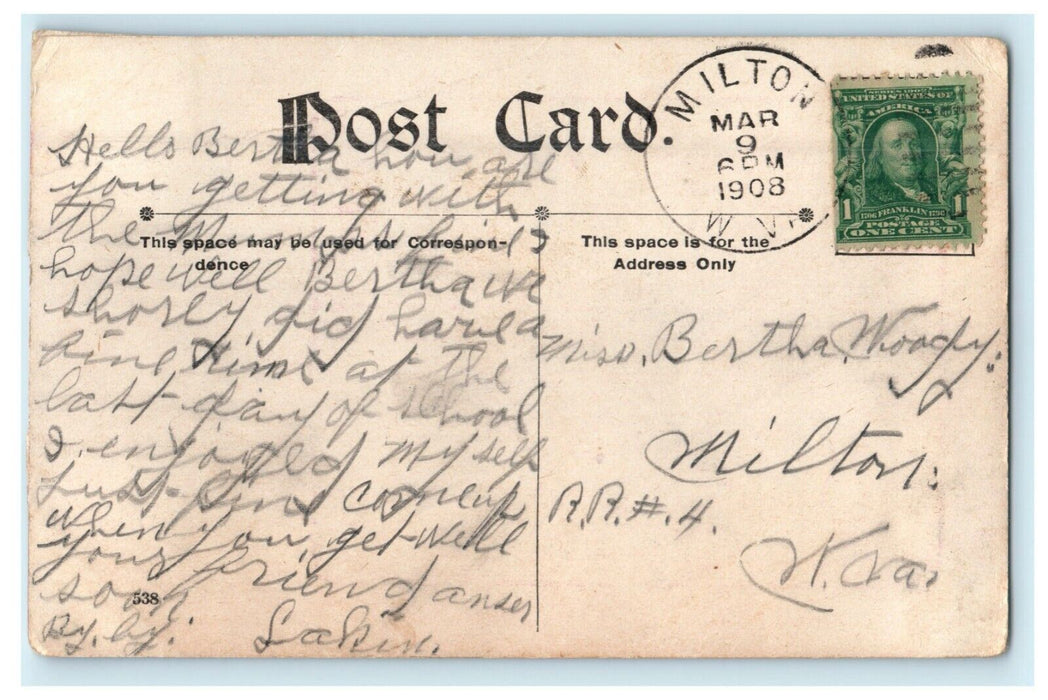 Post Card.
MILTON
MAR
9
6 PM
1908
W. VA.
SERIES 1902
UNITED STATES OF
AMERICA
1706 FRANKLIN 1790
1 POSTAGE 1
ONE CENT
This space may be used for Correspon-
dence
This space is for the
Address Only
Hello Bertha how are
you getting with
the Mumps kid I
hope well Bertha we
shorly did have a
fine time at the
last day of school
I enjoyed My self
Just fine come up
when you get well
your friend anser
soon
By. by. Lakin.
538
Miss. Bertha. Woody.
Milton.
R.R. #. 4.
W. Va.